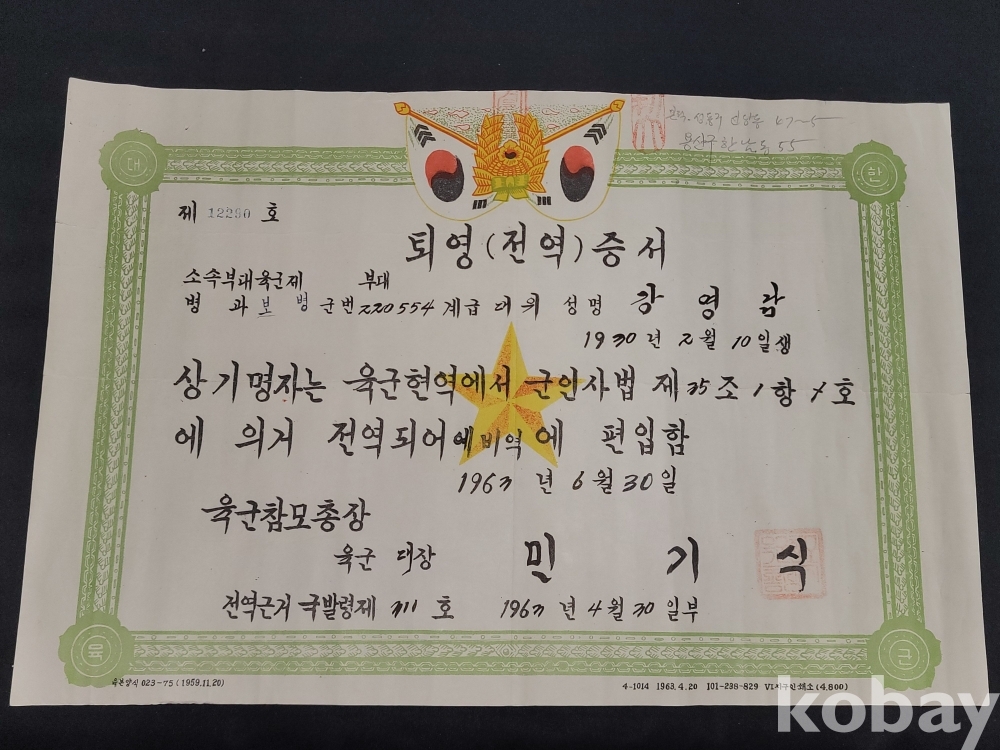 용산구 한남동 55
대 한
제 12280 호
퇴영(전역)증서
소속부대육군제 부대
병 과 보 병 군번 220554 계급 대위 성명 강 영
1930년 2월 10일생
상기명자는 육군현역에서 군인사법 제 35조 1항 호
에 의거 전역되어 예비역에 편입함
1963년 6월 30일
육군참모총장
육군 대장 민 기 식
전역근거 국발령제 311 호 1963년 4월 30일부
육 군
육본양식 023-75 (1959.11.20)
4-1014 1963.4.20 101-238-829
kobay